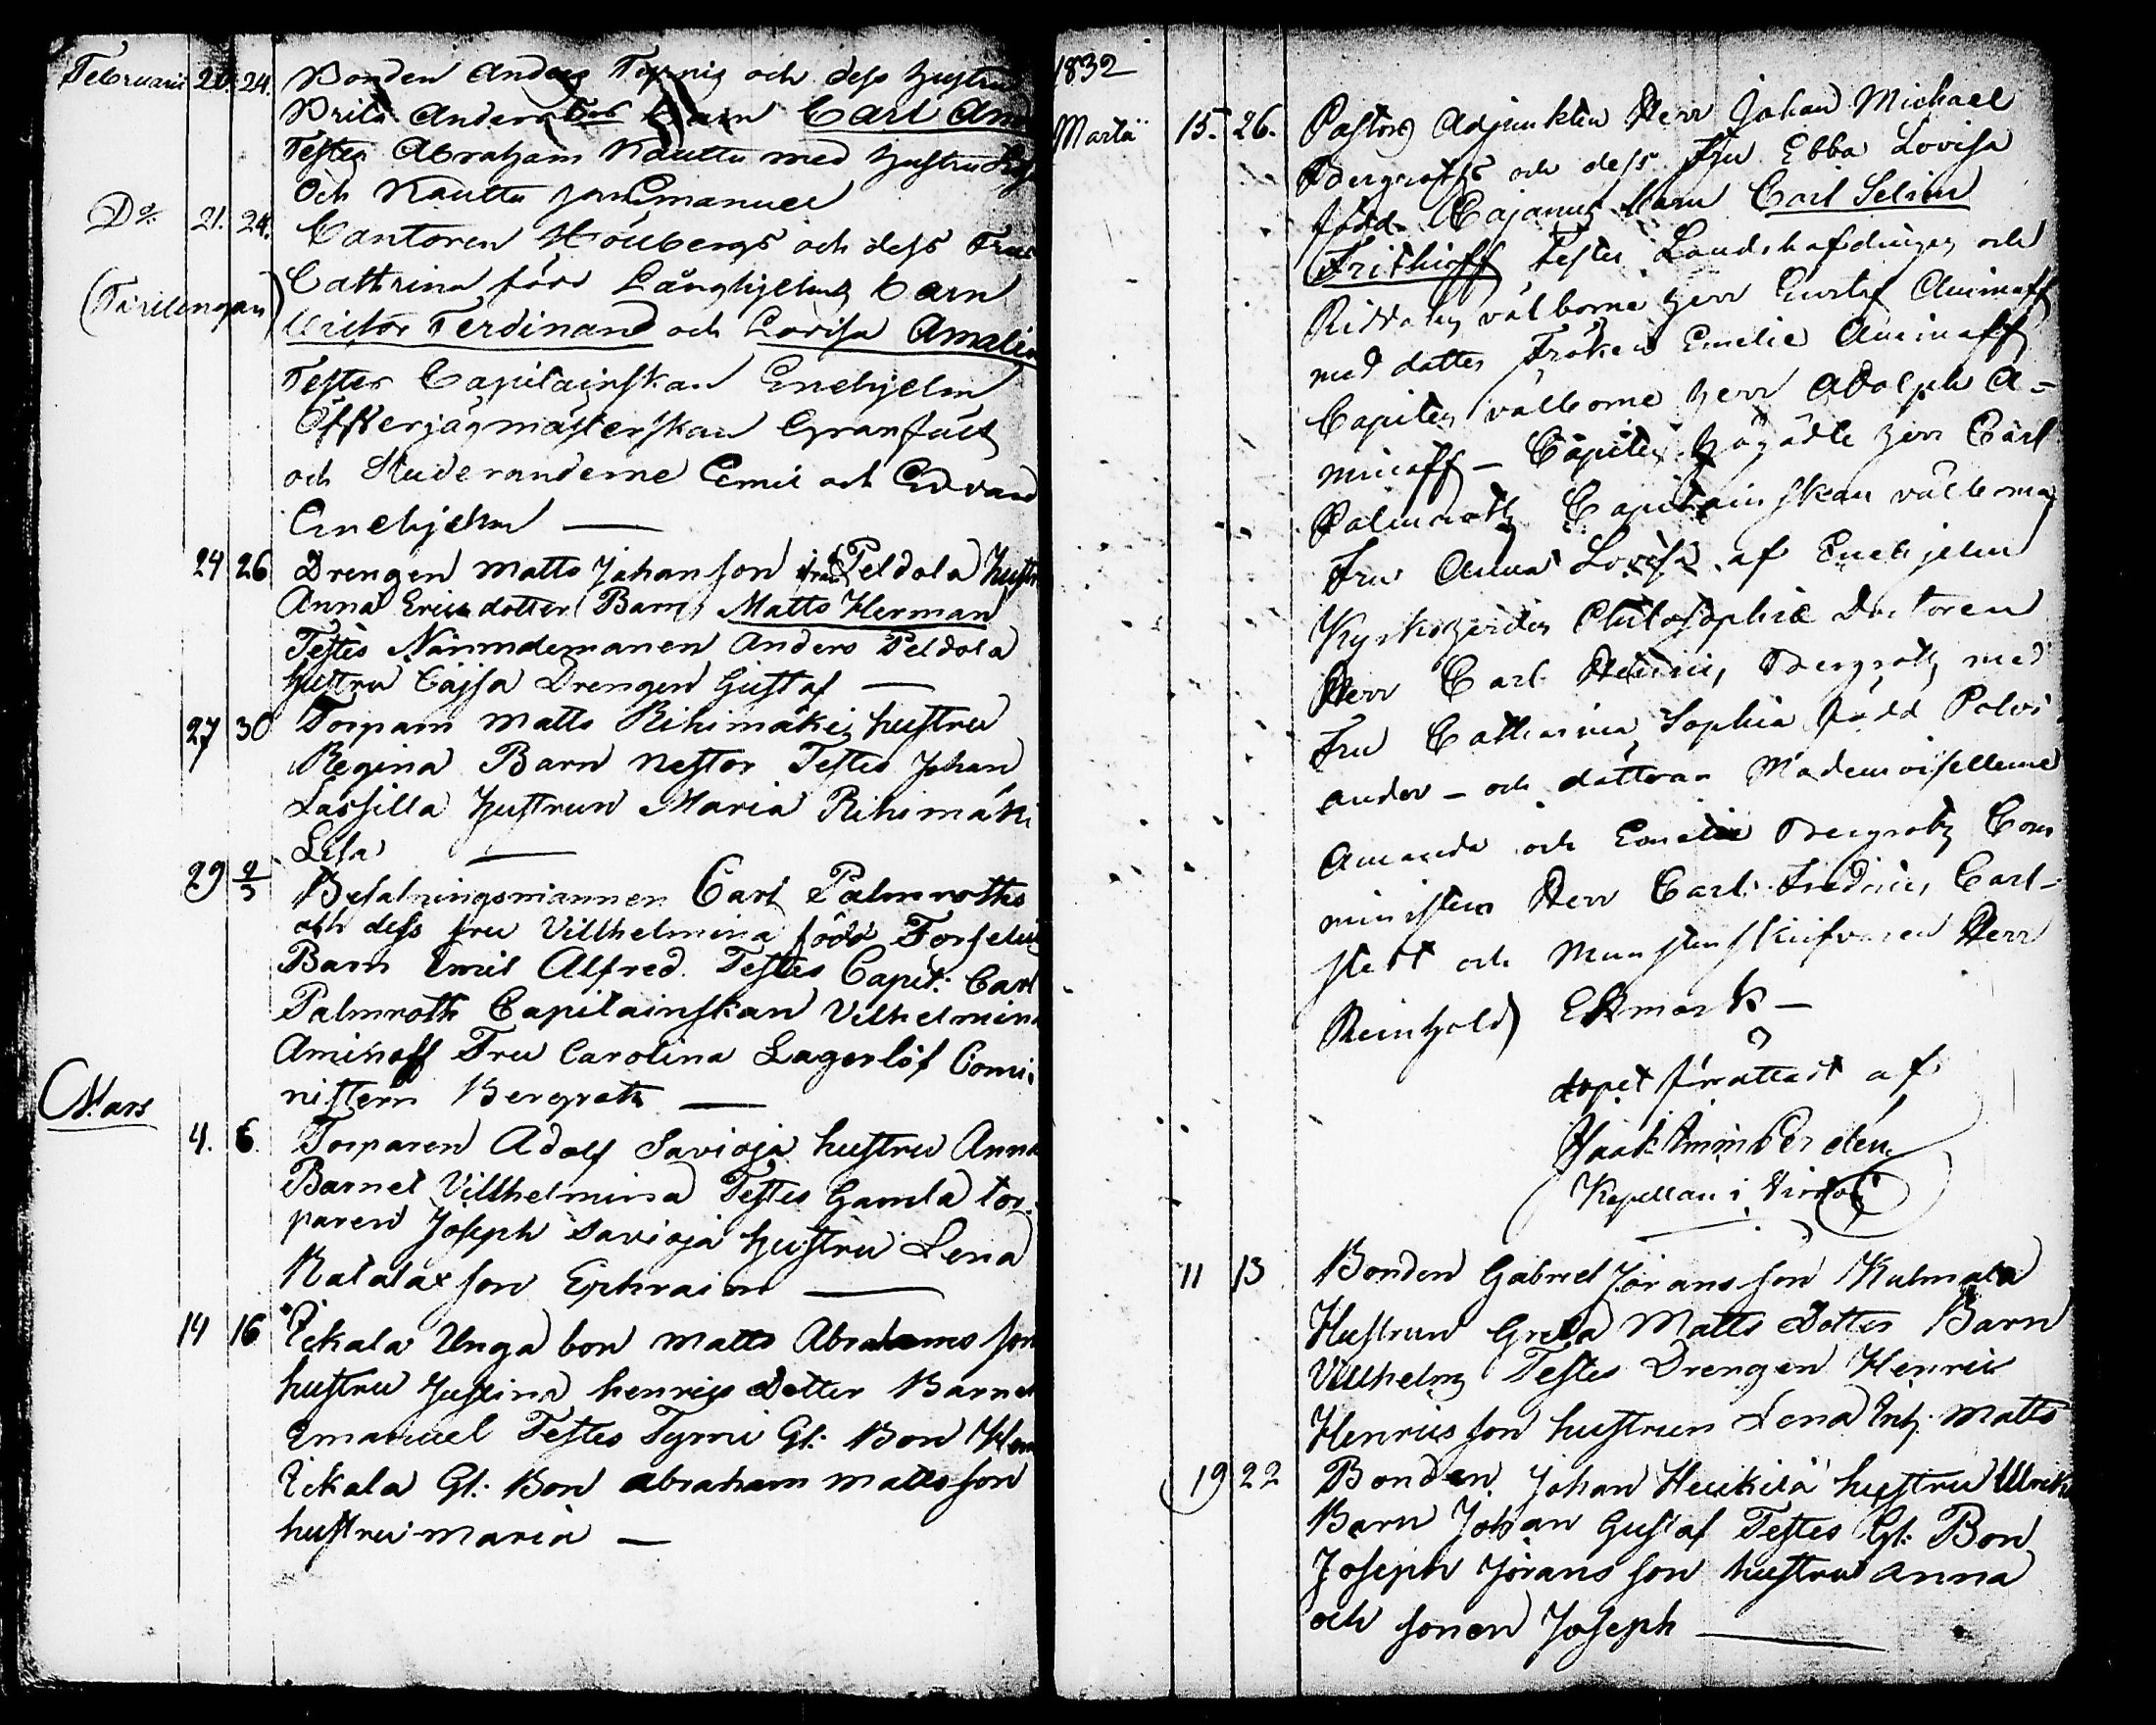 Februarii 20. 24. Bonden Anders Tyrnis och dess hustru
Brita Anders Barn Carl And
Testes Abraham Kauttu med hustru
Och Kauttu son Emanuel
Do 21. 24. Cantoren Höübergs och dess Fru
Cathrina född Långhjelms barn
(Tvilingar) Victor Ferdinand och Lovisa Amalia
Testes Capitainskan Enehjelm
Öfferjägmästerskan Granfält
och Studeranderne Emil och Edvard
Enehjelm —
24 26 Drengen Matts Johansson från Peldola Hustr
Anna Ericsdotter Barn Matts Herman
Testes Nämndemannen Anders Peldola
hustru Cajsa Drengen Gustaf —
27 30 Torparn Matts Rihimäki hustru
Regina Barn Nestor Testes Johan
Lassilla hustrun Maria Rihimäki
Lisa —
29 2/3 Befalningsmannen Carl Palmroths
och dess fru Villhelmina född Forselius
Barn Emil Alfred. Testes Capit: Carl
Palmroth Capitainskan Vilhelmina
Aminoff Fru Carolina Lagerlöf Comi
nistern Bergroth —
Mars
4. 6. Torparen Adolf Savioja hustru Anna
Barnet Villhelmina Testes Gamla tor-
paren Joseph Savioja hustru Lena
Ratalax son Ephraim —
14 16 Eekala Unga bon Matts Abrahamsson
hustru Justina henrics Dotter Barnet
Emanuel Testes Tyrni Gl: Bon Hen
Eekala Gl: Bon Abraham Mattsson
hustru Maria —
1832
Martii 15. 26. Pastors Adjunkten Herr Johan Michael
Bergroths och dess Fru Ebba Lovisa
född Cajanus barn Carl Selim
Frithioff Testes Landshöfdingen och
Riddaren välborne herr Gustaf Aminoff
med dotter Fröken Emelie Aminoff
Capiten välborne herr Adolph A-
minoff — Capiten högädle herr Carl
Palmroth Capitainskan välborna
Fru Anna Lovisa af Enehjelm
Kyrkoherden Philosophiæ Doctoren
Herr Carl Henric Bergroth med
Fru Catharina Sophia född Polvi
ander — och döttrar Mademoisellerne
Amanda och Emelie Bergroth Com
ministern Herr Carl Fredric Carl-
stett och Munsterskrifvaren Herr
Reinhold Ekmark —
dopet förrättadt af
Isaak
Kapellan i Virdois
11 13 Bonden Gabriel Jöransson Kulmala
Hustrun Greta Matts Dotter Barn
Villhelm Testes Drengen Henric
Henricsson hustrun Lena Matts
19 22 Bonden Johan Heikilä hustru Ulrika
Barn Johan Gustaf Testes Gl: Bon
Joseph Jöransson hustru Anna
och sonen Joseph —